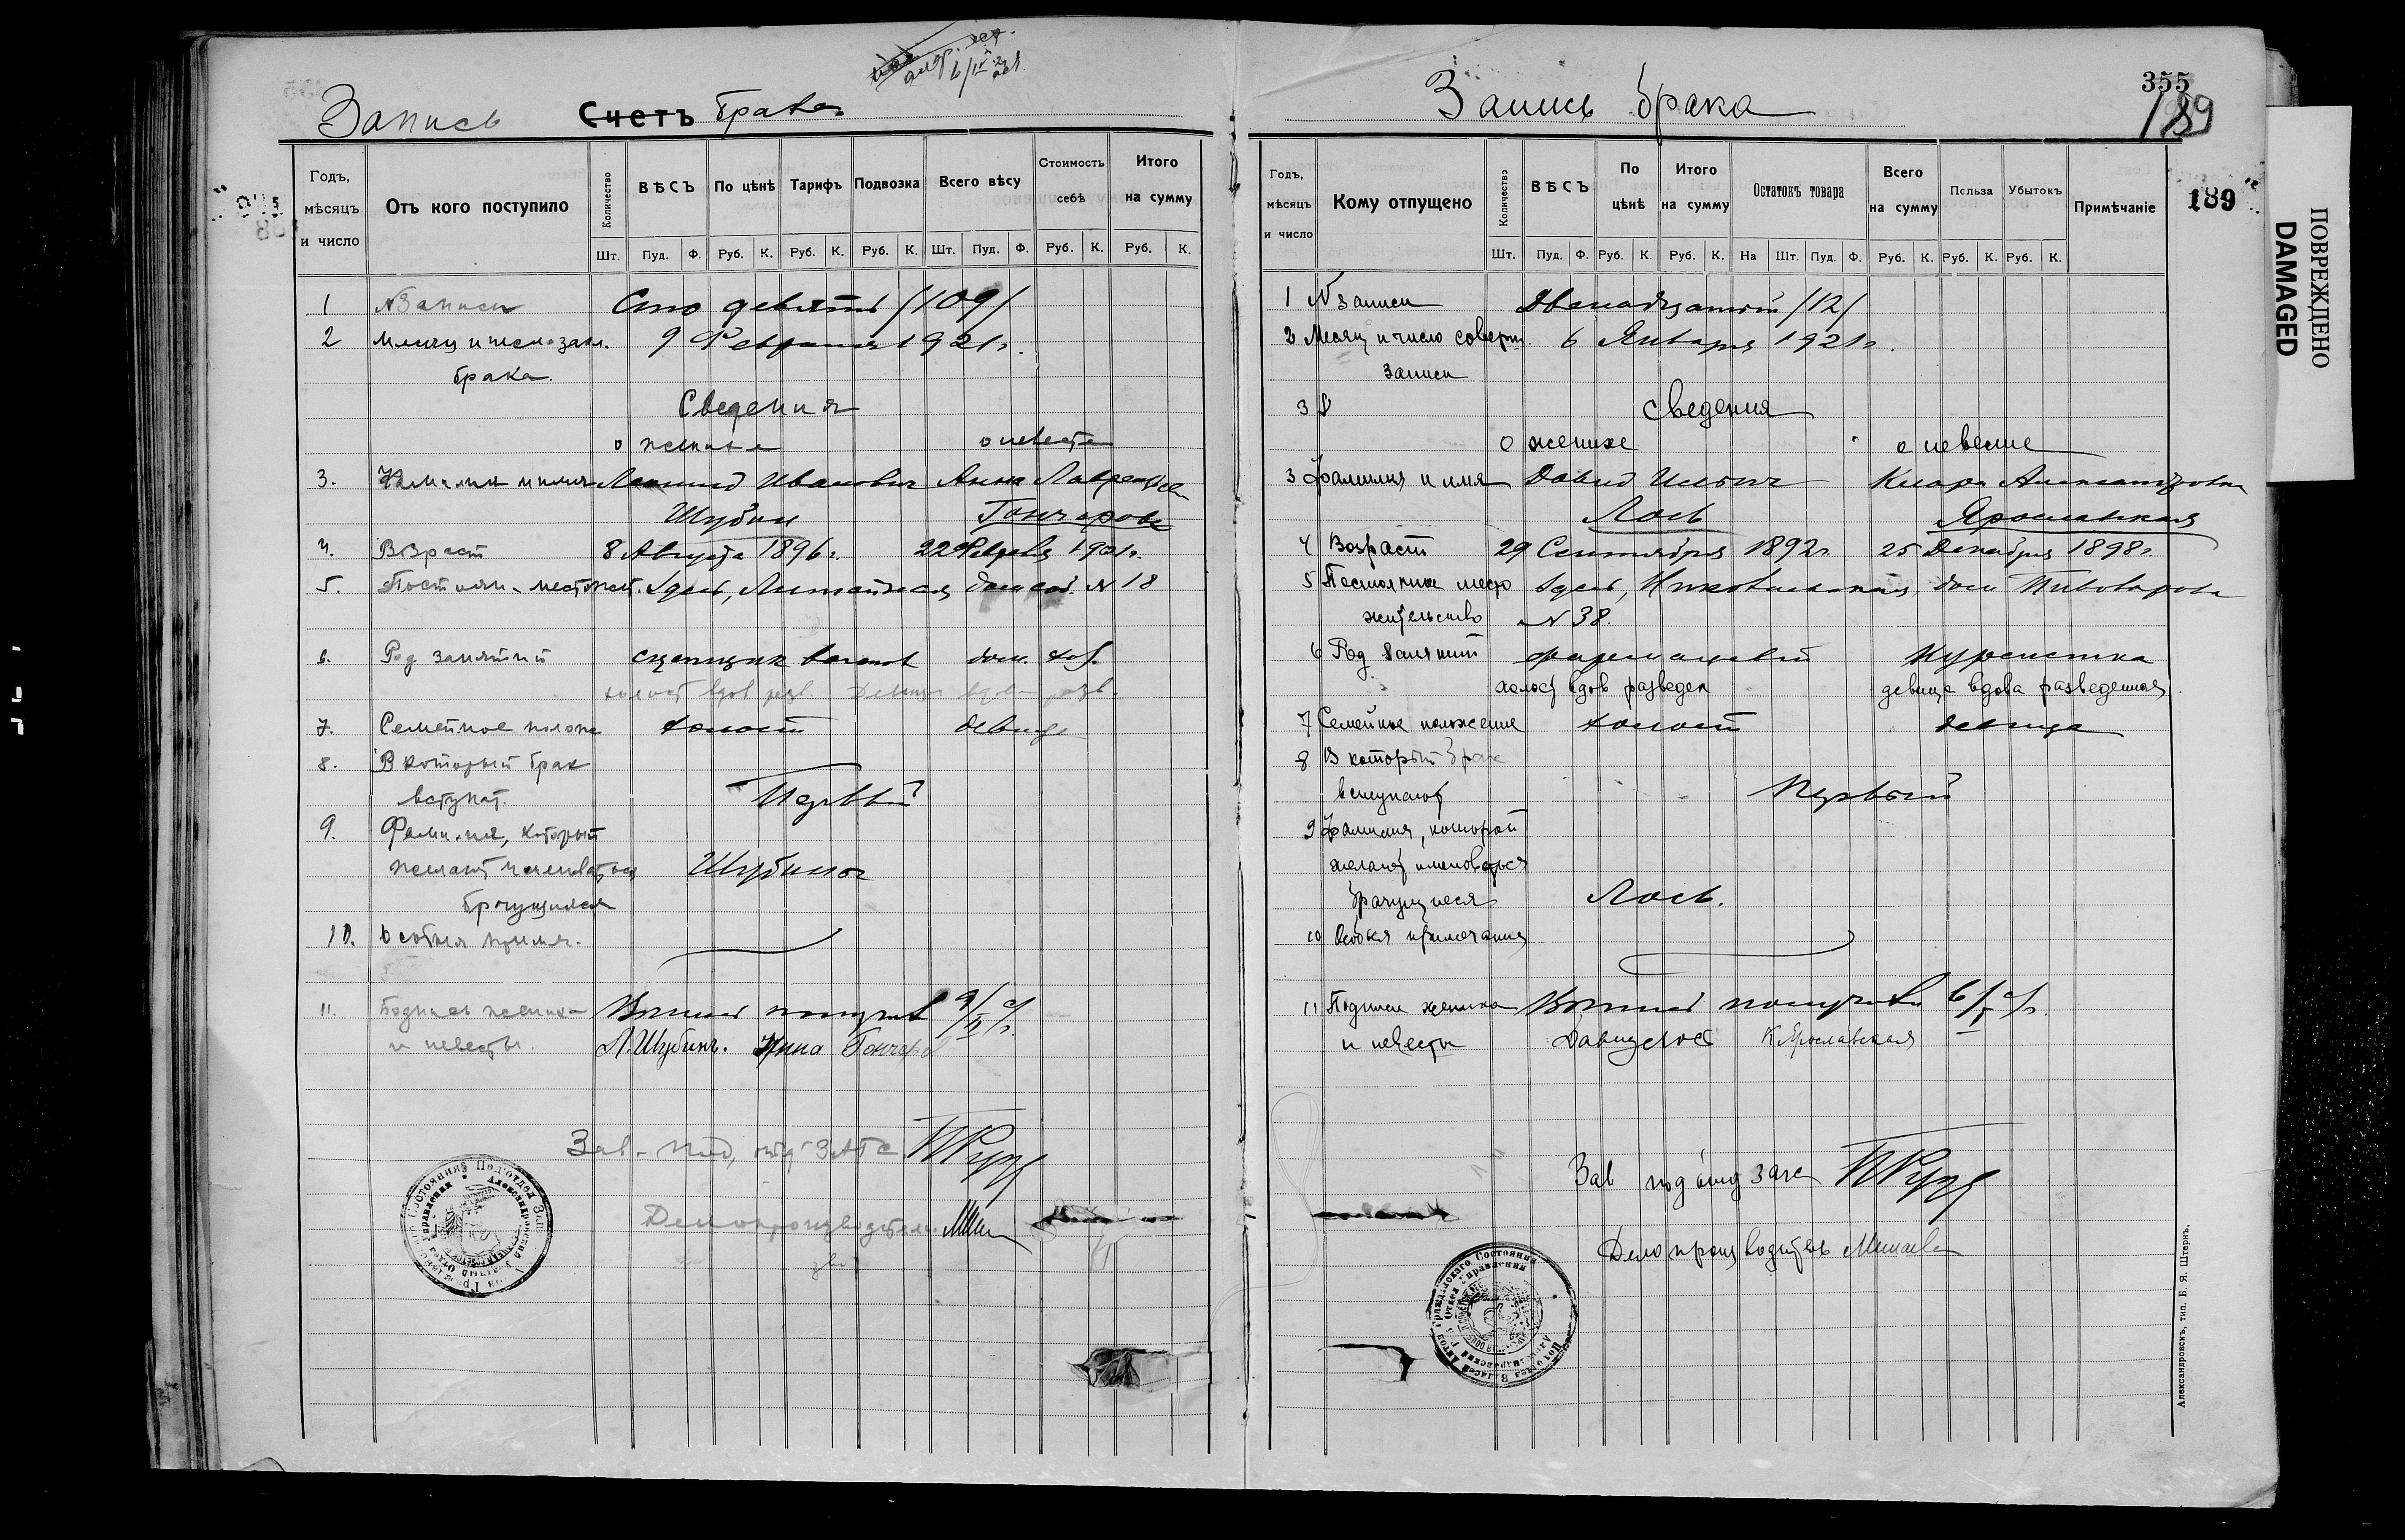 Запись Счетъ брака
Годъ, мѣсяцъ и число
Отъ кого поступило
Количество
ВѢСЪ
По цѣнѣ
Тарифъ
Подвозка
Всего вѣсу
Стоимость себѣ
Итого на сумму
Шт. Пуд. Ф. Руб. К. Руб. К. Руб. К. Шт. Пуд. Ф. Руб. К. Руб. К.
1 N Записи Сто девятый /109/
2 Месяц и число зак. 9 Февраля 1921 г.
брака.
Сведения
о женихе о невесте
3. Фамилия и имя Леонид Иванович Анна Лаврентьев
Шубин Гончарова
4. Возраст 8 Августа 1896 г. 22 Февраля 1901 г.
5. Постоян. местожит. Здесь, дом N 18
6. Род занятий сцепщик вагонов дом. хоз.
холост вдов разв. Девица вдова разв.
7. Семейное полож холост девица
8. В который брак
вступают. Первый
9. Фамилия, которой
желают именоваться Шубины
брачущиеся
10. Особыя примеч.
11. Подпись жениха 9/II с/г.
и невесты. Л. Шубинъ. Анна Гончаров
Зав. под, отд ЗАГС
Делопроизводитель
Запись брака
355
189
Годъ, мѣсяцъ и число
Кому отпущено
Количество
ВѢСЪ
По цѣнѣ
Итого на сумму
Остатокъ товара
Всего на сумму
Польза
Убытокъ
Примѣчаніе
189
Шт. Пуд. Ф. Руб. К. Руб. К. На Шт. Пуд. Ф. Руб. К. Руб. К. Руб. К.
1 N записи Двенадцатый /12/
2 Месяц и число соверш. 6 Января 1921 г.
записи
3 Сведения
о женихе о невесте
3 Фамилия и имя Давид Ильич Клара Александровна
Лось Ярославская
4 Возраст 29 Сентября 1892 г. 25 Декабря 1898 г.
5 Постоянное место Здесь, Никольская, дом Пивоварова
жительство N 38.
6 Род занятий фармацевт Курсистка
холост вдов разведен девица вдова разведенная
7 Семейное положение холост девица
8 В который брак
вступают Первый
9 Фамилия, которой
желают именоваться
брачущиеся Лось.
10 Особыя примечания
11 Подписи жениха 6/I с/г.
и невесты Давид Лось К Ярославская
Зав под отд загса
Делопроизводитель Минаева
Александровскъ, тип. Б. Я. Штернъ.
ПОВРЕЖДЕНО
DAMAGED